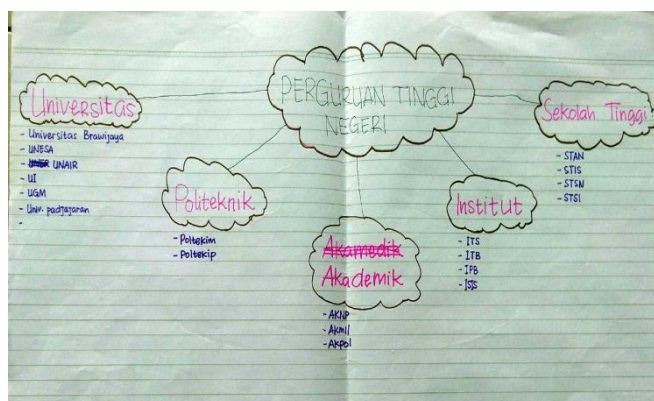 PERGURUAN TINGGI
NEGERI
Universitas
- Universitas Brawijaya
- UNESA
- UNAIR
- UI
- UGM
- Univ. padjajaran
-
Politeknik
- Poltekim
- Poltekip
Akamedik
Akademik
- AKNP
- Akmil
- Akpol
Institut
- ITS
- ITB
- IPB
Sekolah Tinggi
- STAN
- STIS
- STSN
- STSI